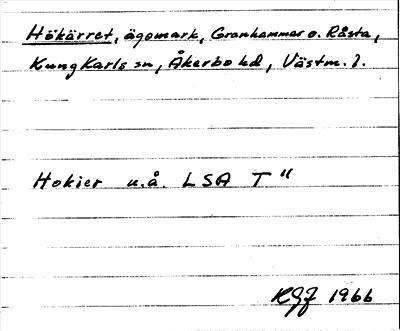 Hökärret, ägomark, Granhammar o. Råsta,
Kung Karls sn, Åkerbo hd, Västm. l.
Hokier u.å. LSA T"
KGF 1966